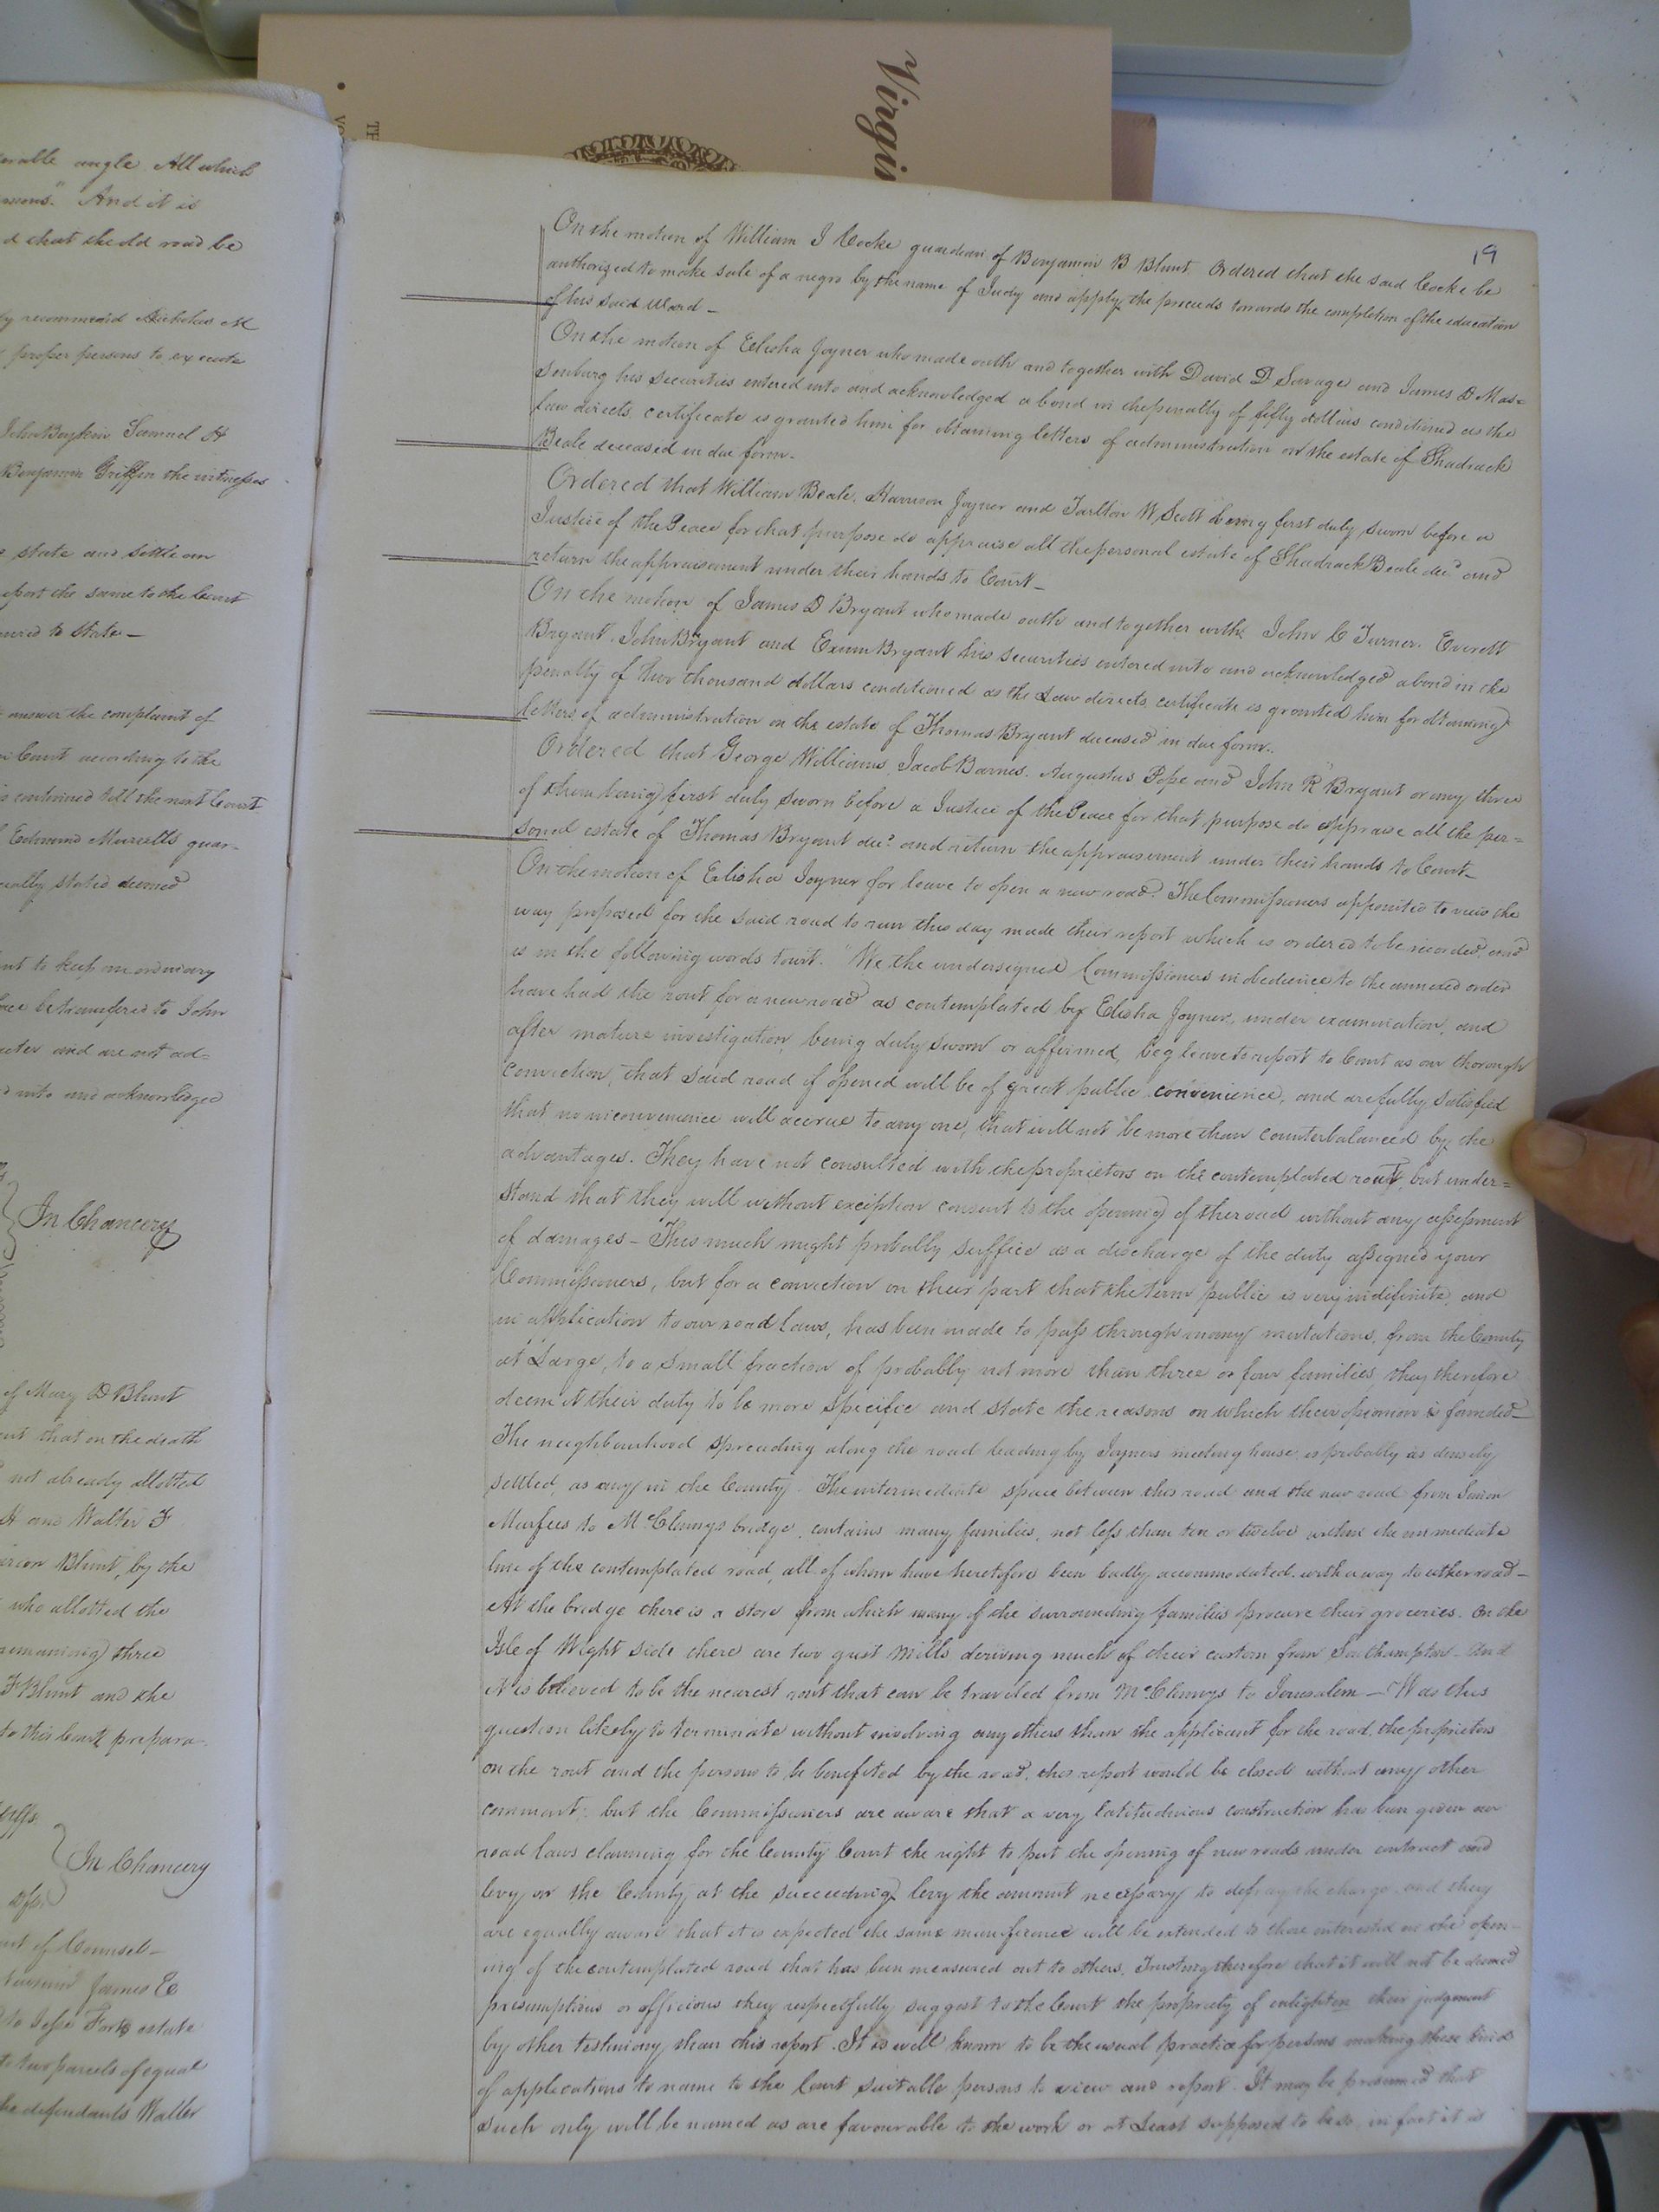 Virgi
TH
VO
erable angle All which
And it is
d that the old road be
ly recommend Nicholas M
proper persons to execute
John Boykin Samuel H
Benjamin Griffin the witnesses
state and settle an
report the same to the Court
to state —
answer the complaint of
Court according to the
continued till the next Court
Edmund Murells guar-
ially stated deemed
to keep an ordinary
be transfered to John
and are not ad=
into and acknowledged
In Chancery
of Mary D Blunt
that on the death
not already allotted
H and Walter F
Blunt, by the
who allotted the
remaining three
F Blunt and the
to this Court prepara-
In Chancery
of Counsel —
James E
to Jesse Forts estate
two parcels of equal
the defendants Walter
19
On the motion of William I Cocke guardian of Benjamin B Blunt Ordered that the said Cocke be
authorized to make sale of a negro by the name of Judy and apply the proceeds towards the completion of the education
of his said Ward —
On the motion of Elisha Joyner who made oath and together with David D Savage and James D Mas=
senburg his securities entered into and acknowledged a bond in the penalty of fifty dollars conditioned as the
law directs certificate is granted him for obtaining letters of administration on the estate of Shadrack
Beale deceased in due form.
Ordered that William Beale, Harrison Joyner and Tarlton W Scott being first duly sworn before a
Justice of the Peace for that purpose do appraise all the personal estate of Shadrack Beale decd and
return the appraisement under their hands to Court —
On the motion of James D Bryant who made oath and together with John C Turner, Everett
Bryant, John Bryant and Exum Bryant his securities entered into and acknowledged a bond in the
penalty of two thousand dollars conditioned as the Law directs certificate is granted him for obtaining
letters of administration on the estate of Thomas Bryant deceased in due form.
Ordered that George Williams, Jacob Barnes, Augustus Pope and John R Bryant or any three
of them being first duly sworn before a Justice of the Peace for that purpose do appraise all the per=
sonal estate of Thomas Bryant decd and return the appraisement under their hands to Court —
On the motion of Elisha Joyner for leave to open a new road. The Commissioners appointed to view the
way proposed for the said road to run this day made their report which is ordered to be recorded and
is in the following words towit. "We the undersigned Commissioners in obedience to the annexed order
have had the rout for a new road as contemplated by Elisha Joyner, under examination, and
after mature investigation, being duly sworn or affirmed, beg leave to report to Court as our thorough
conviction, that said road if opened will be of great public convenience, and are fully satisfied
that no inconvenience will accrue to any one, that will not be more than counterbalanced by the
advantages. They have not consulted with the proprietors on the contemplated rout, but under=
stand that they will without exception consent to the opening of the road without any assessment
of damages — Thus much might probably suffice as a discharge of the duty assigned your
Commissioners, but for a conviction on their part that the term public is very indefinite, and
in application to our road Laws, has been made to pass through many mutations, from the County
at Large, to a small fraction of probably not more than three or four families, they therefore
deem it their duty to be more specific and state the reasons on which their opinion is founded —
The neighbourhood spreading along the road leading by Joyners meeting house, is probably as densely
settled, as any in the County. The intermediate space between this road and the new road from Simon
Murfees to McClennys bridge, contains many families, not less than ten or twelve within the immediate
line of the contemplated road, all of whom have heretofore been badly accommodated with a way to either road —
At the bridge there is a store from which many of the surrounding families procure their groceries. On the
Isle of Wight side there are two grist Mills deriving much of their custom from Southampton — And
it is believed to be the nearest rout that can be traveled from McClennys to Jerusalem — Was this
question likely to terminate without involving any others than the applicant for the road, the proprietors
on the rout and the persons to be benefited by the road, this report would be closed without any other
comment; but the Commissioners are aware that a very latitudinous construction has been given our
road laws claiming for the County Court the right to put the opening of new roads under contract and
levy on the County at the succeeding levy the amount necessary to defray the charge and they
are equally aware that it is expected the same munificence will be extended to those interested in the open-
ing of the contemplated road that has been measured out to others. Trusting therefore that it will not be deemed
presumptious or officious they respectfully suggest to the Court the propriety of enlighten their judgment
by other testimony than this report. It is well known to be the usual practice for persons making these kind
of applications to name to the Court suitable persons to view and report. It may be presumed that
such only will be named as are favourable to the work or at Least supposed to be so, in fact it is